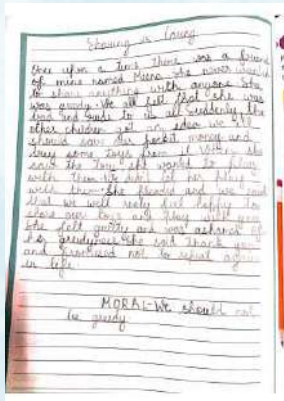 Sharing is Caring
Once upon a time there was a friend
of mine named Meena. She never wanted
to share anything with anyone. She
was greedy. We all felt that she was
bad and rude to us all. Suddenly the
other children got an idea we all
should save our pocket money and
buy some toys from it. When she
saw the toys she wanted to play
with them. We didn't let her play
with them. She pleaded and we said
that we will only feel happy to
share our toys and play with you.
She felt guilty and was ashamed of
her greedyness. She said thank you
and promised not to repeat again
in life.
MORAL-We should not
be greedy